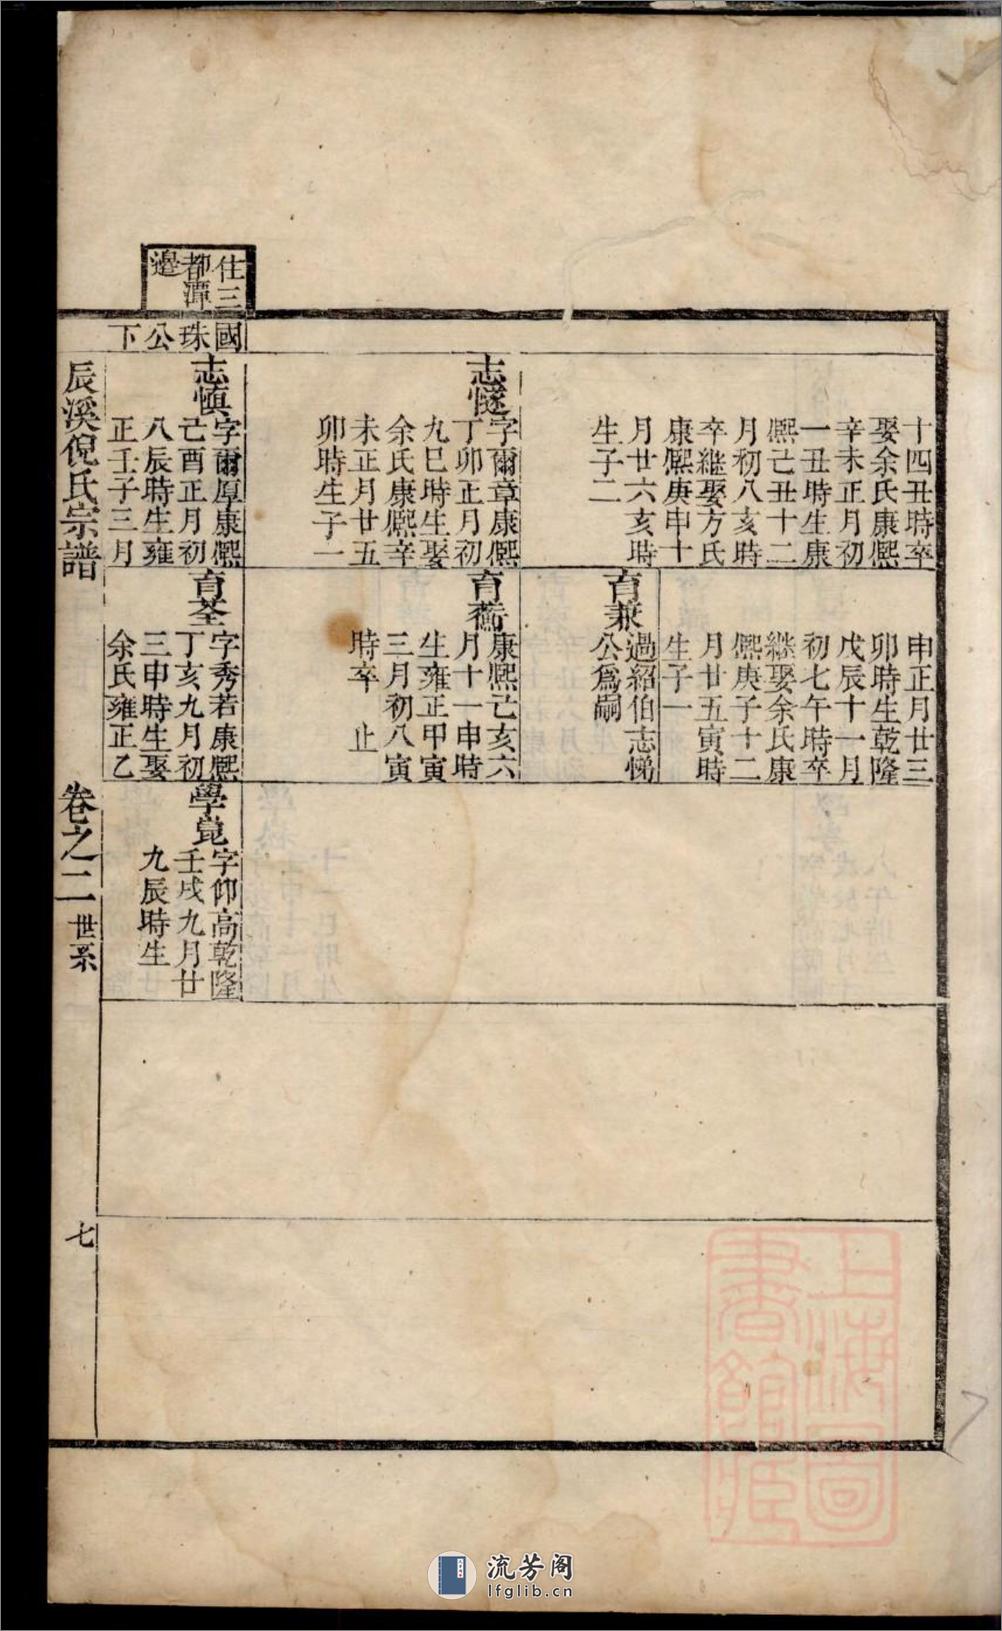 十四丑時卒
娶余氏康熙
辛未正月初
一丑時生康
熙己丑十二
月初八亥時
卒繼娶方氏
康熙庚申十
月廿六亥時
生子二
志燧
字爾章康熙
丁卯正月初
九巳時生娶
余氏康熙辛
未正月廿五
卯時生子一
住三
都潭
邊
國珠公下
志慎
字爾厚康熙
己酉正月初
八辰時生雍
正壬子三月
申正月廿三
卯時生乾隆
戊辰十一月
初七午時卒
繼娶余氏康
熙庚子十二
月廿五寅時
生子一
育兼
過紹伯志悌
公爲嗣
康熙己亥六
月十一申時
生雍正甲寅
三月初八寅
時卒 止
育荃
字秀若康熙
丁亥九月初
三申時生娶
余氏雍正乙
學嵬
字仰高乾隆
壬戌九月廿
九辰時生
辰溪倪氏宗譜
卷之二 世系
七
上海圖
書館藏
流芳阁
lfglib.cn